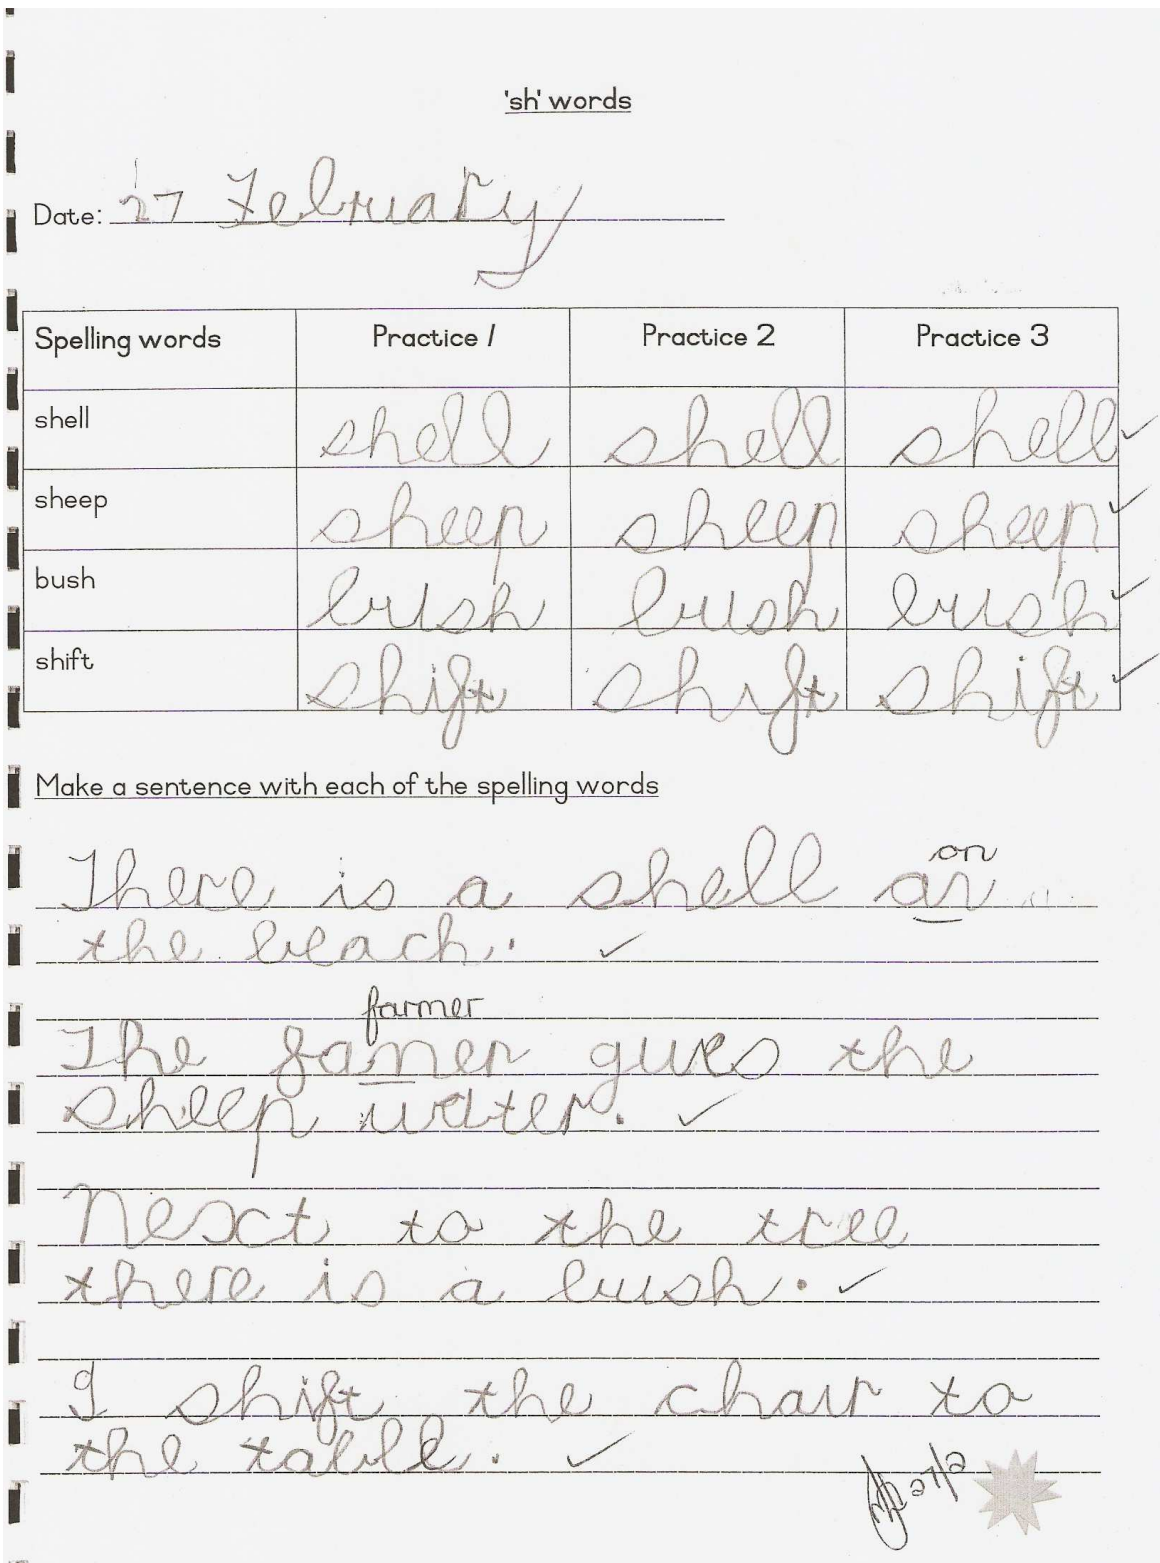 'sh' words
Date: 27 February
Spelling words Practice 1 Practice 2 Practice 3
shell shell shell shell
sheep sheep sheep sheep
bush bush bush bush
shift shift shift shift
Make a sentence with each of the spelling words
on
There is a shell an
the beach.
farmer
The famer gives the
sheep water.
Next to the tree
there is a bush.
I shift the chair to
the table.
27/2